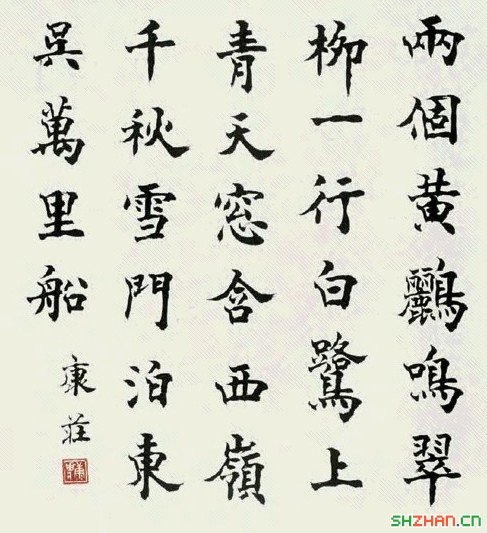 兩個黄鸝鳴翠
柳一行白鷺上
青天窓含西嶺
千秋雪門泊東
吳萬里船
康莊
SHZHAN.CN